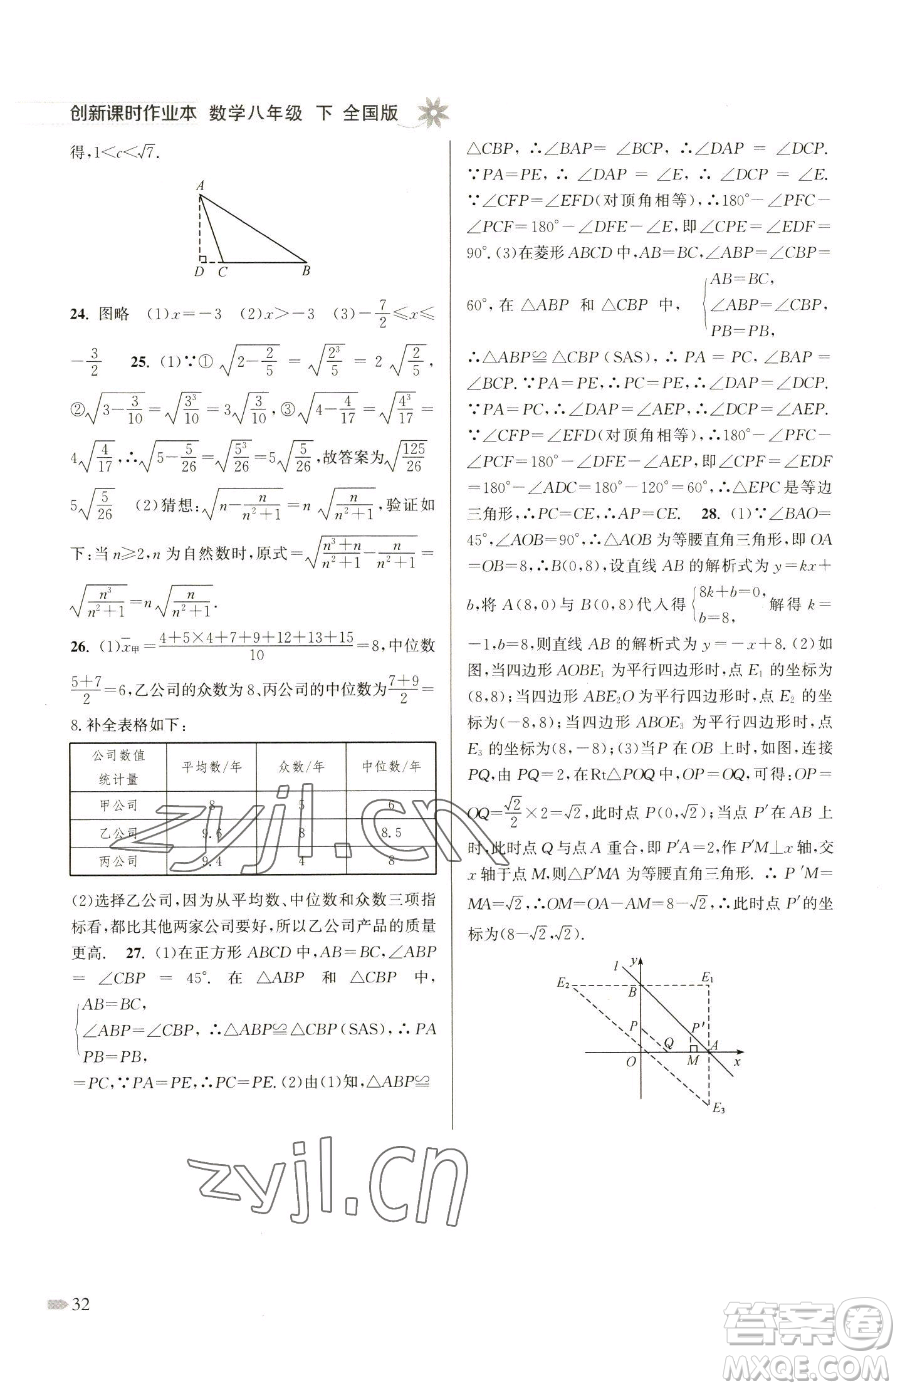 创新课时作业本 数学八年级 下 全国版
得,1<c<√7.
A
D C B
24. 图略 (1)x=-3 (2)x>-3 (3)-7/2≤x≤
-3/2 25. (1)∵①√(2-2/5)=√(2³/5)=2√(2/5),
②√(3-3/10)=√(3³/10)=3√(3/10),③√(4-4/17)=√(4³/17)=
4√(4/17),∴√(5-5/26)=√(5³/26)=5√(5/26),故答案为√(125/26)=
5√(5/26) (2)猜想:√(n-n/(n²+1))=n√(n/(n²+1)),验证如
下:当n≥2,n为自然数时,原式=√((n³+n)/(n²+1)-n/(n²+1))=
√(n³/(n²+1))=n√(n/(n²+1)).
26. (1)x̄甲=(4+5×4+7+9+12+13+15)/10=8,中位数
(5+7)/2=6,乙公司的众数为8、丙公司的中位数为(7+9)/2=
8.补全表格如下:
公司数值 统计量 平均数/年 众数/年 中位数/年
甲公司 8 5 6
乙公司 9.6 8 8.5
丙公司 9.4 4 8
(2)选择乙公司,因为从平均数、中位数和众数三项指
标看,都比其他两家公司要好,所以乙公司产品的质量
更高. 27. (1)在正方形ABCD中,AB=BC,∠ABP
=∠CBP=45°. 在△ABP和△CBP中,
{AB=BC,
∠ABP=∠CBP, ∴△ABP≌△CBP(SAS),∴PA
PB=PB,
=PC,∵PA=PE,∴PC=PE. (2)由(1)知,△ABP≌
△CBP,∴∠BAP=∠BCP,∴∠DAP=∠DCP.
∵PA=PE,∴∠DAP=∠E,∴∠DCP=∠E.
∵∠CFP=∠EFD(对顶角相等),∴180°-∠PFC-
∠PCF=180°-∠DFE-∠E,即∠CPE=∠EDF=
90°. (3)在菱形ABCD中,AB=BC,∠ABP=∠CBP=
{AB=BC,
60°,在△ABP和△CBP中, ∠ABP=∠CBP,
PB=PB,
∴△ABP≌△CBP(SAS),∴PA=PC,∠BAP=
∠BCP.∵∠DAB=∠DCB,∴∠DAP=∠DCP.
∵PA=PC,∴∠DAP=∠AEP,∴∠DCP=∠AEP.
∵∠CFP=∠EFD(对顶角相等),∴180°-∠PFC-
∠PCF=180°-∠DFE-∠AEP,即∠CPF=∠EDF
=180°-∠ADC=180°-120°=60°,∴△EPC是等边
三角形,∴PC=CE,∴AP=CE. 28. (1)∵∠BAO=
45°,∠AOB=90°,∴△AOB为等腰直角三角形,即OA
=OB=8,∴A(8,0),B(0,8),设直线AB的解析式为y=kx+
b,将A(8,0)与B(0,8)代入得{8k+b=0, b=8, 解得k=
-1,b=8,则直线AB的解析式为y=-x+8. (2)如
图,当四边形AOBE₁为平行四边形时,点E₁的坐标为
(8,8);当四边形ABE₂O为平行四边形时,点E₂的坐
标为(-8,8);当四边形ABOE₃为平行四边形时,点
E₃的坐标为(8,-8);(3)当P在OB上时,如图,连接
PQ,由PQ=2,在Rt△POQ中,∠OPQ=45°,可得:OP=
OQ=√2/2×2=√2,此时点P(0,√2);当点P′在AB上
时,此时点Q与点A重合,即P′A=2,作P′M⊥x轴,交
x轴于点M,则△P′MA为等腰直角三角形. ∴P′M=
MA=√2,∴OM=OA-AM=8-√2,此时点P′的坐
标为(8-√2,√2).
l y
E₂ B E₁
P P′
Q A
O M x
E₃
zyjl.cn
zyjl.cn
32
答案圈
MXQE.COM